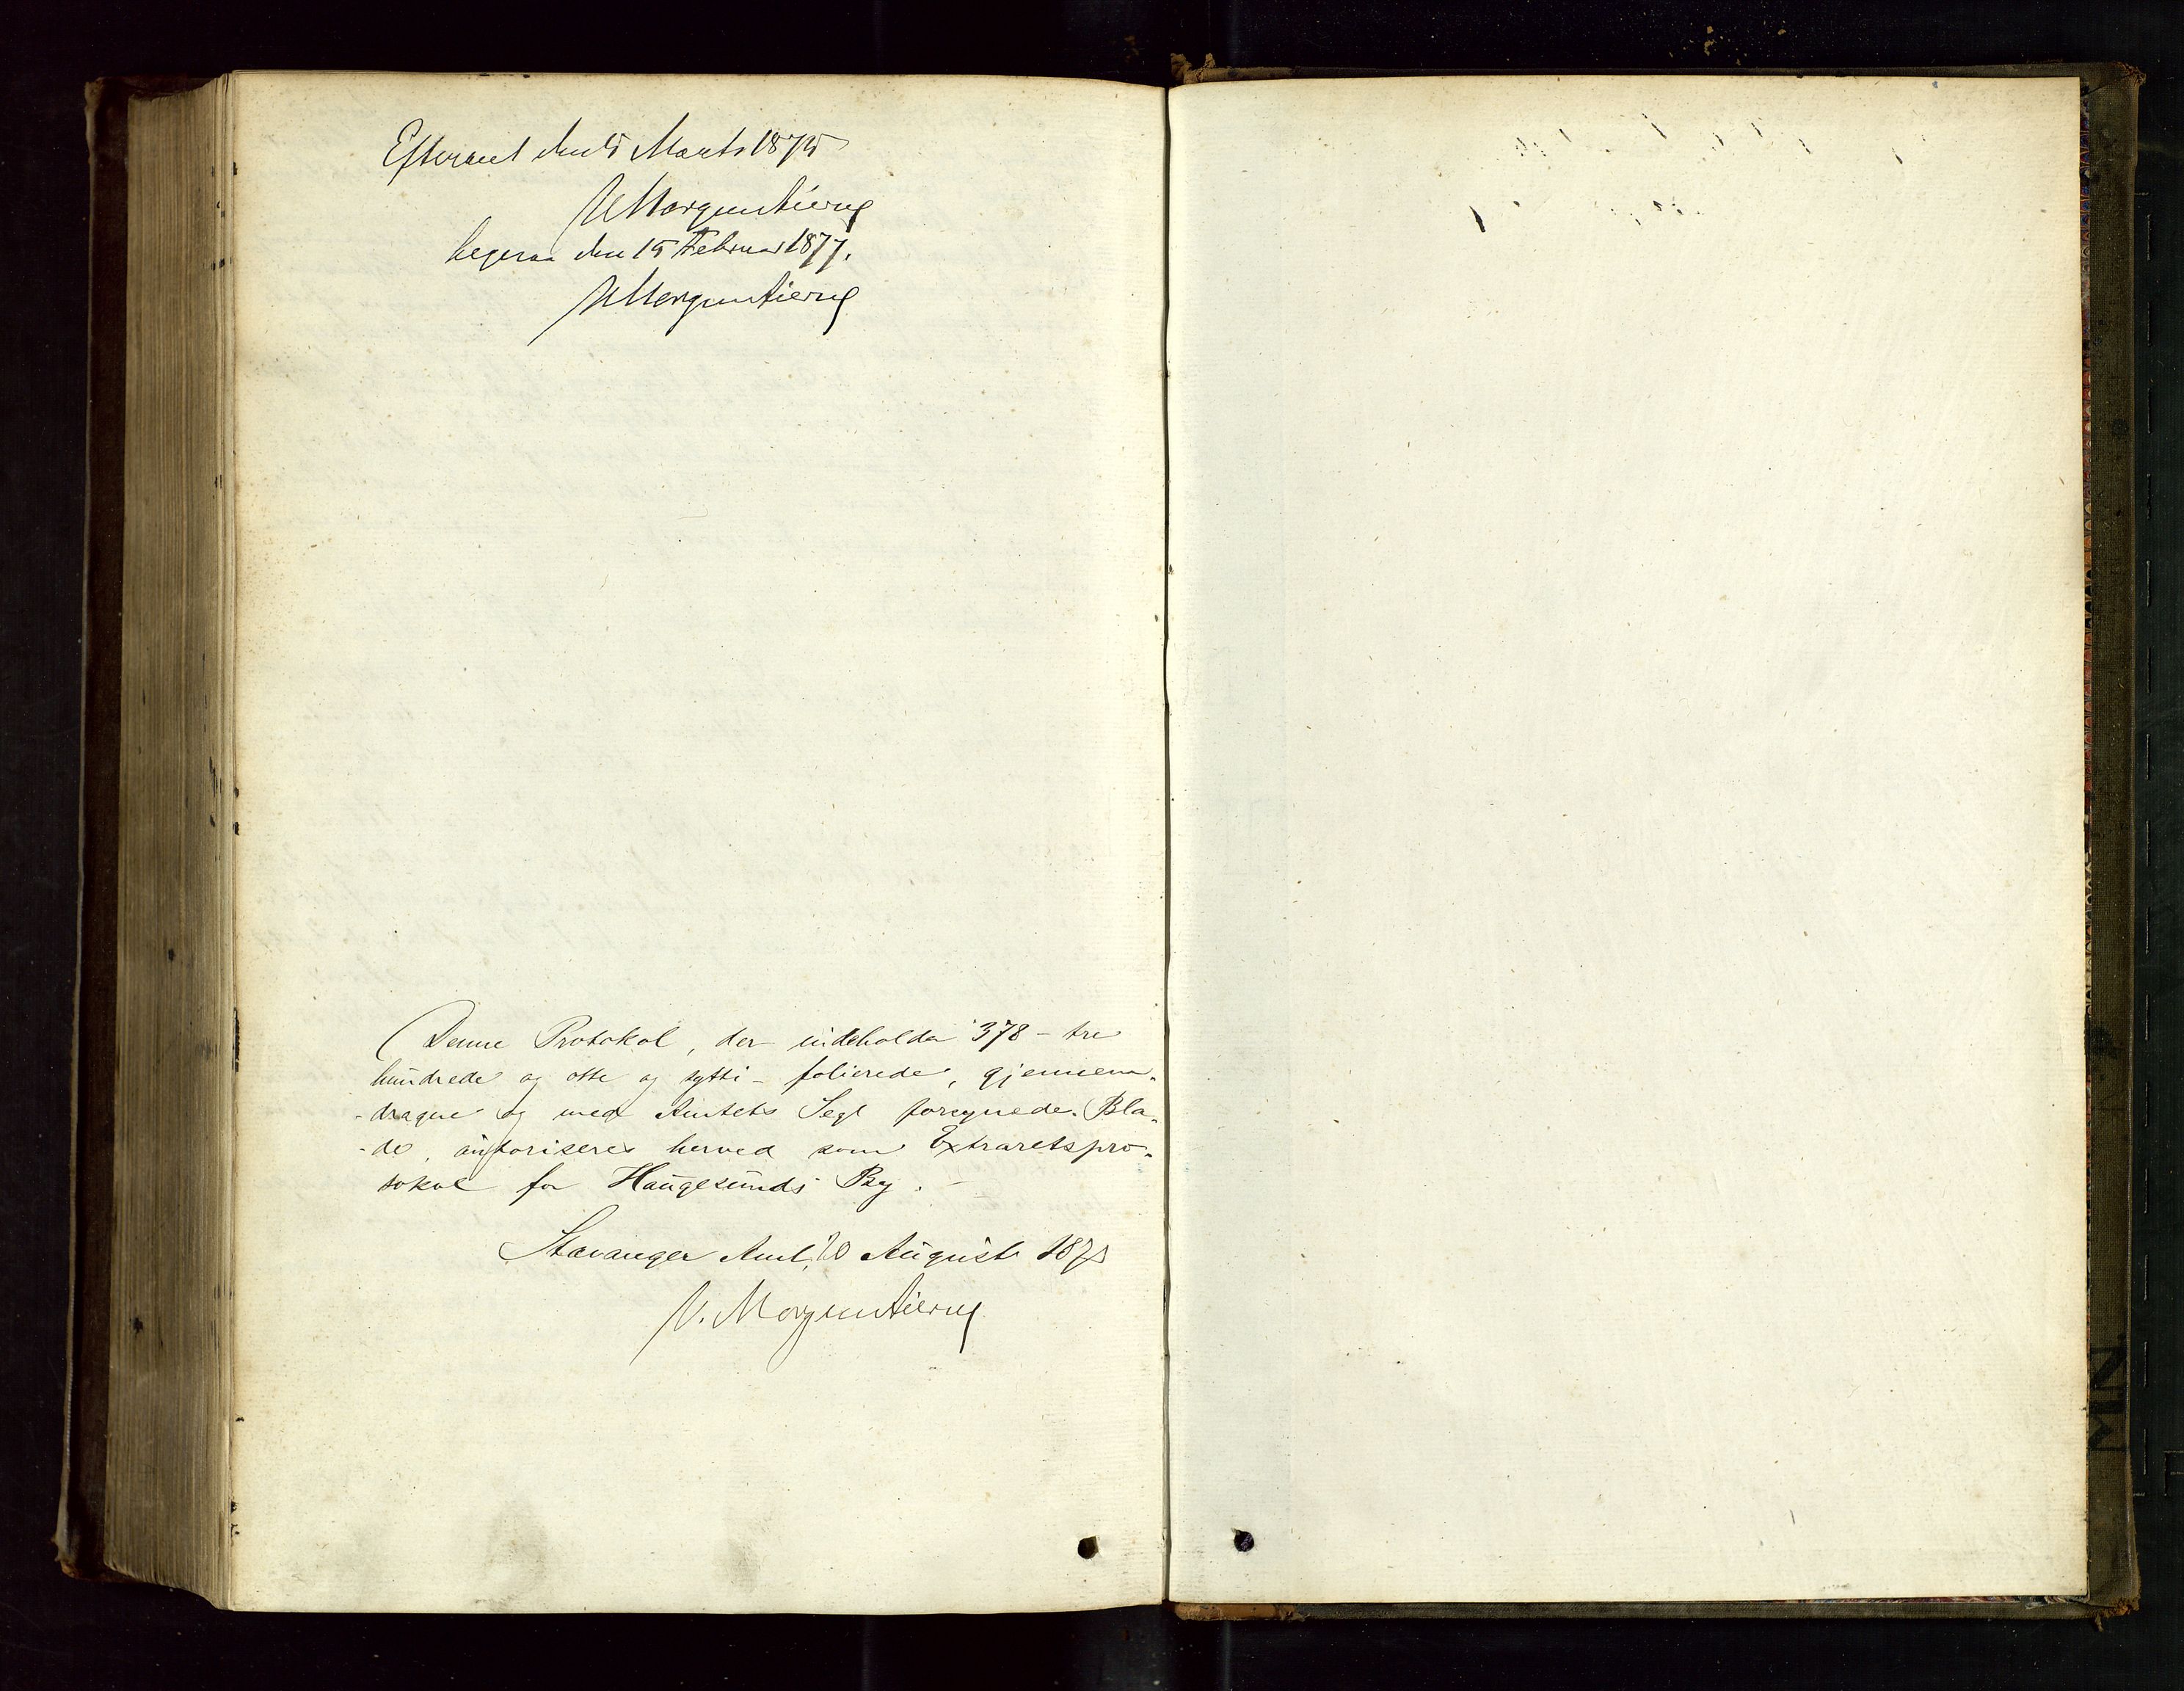 Efterseet den 5 Marts 1875
UMorgenstierne
ligesaa den 15 Februar 1877.
UMorgenstierne
Denne Protokol, der indeholder 378 - tre
hundrede og otte og sytti - folierede, gjennem-
-dragne og med Amtets Segl forsynede Bla-
-de, autoriseres herved som Extraretspro-
tokol for Haugesunds By. -
Stavanger Amt, 20 August 187
U. Morgenstierne